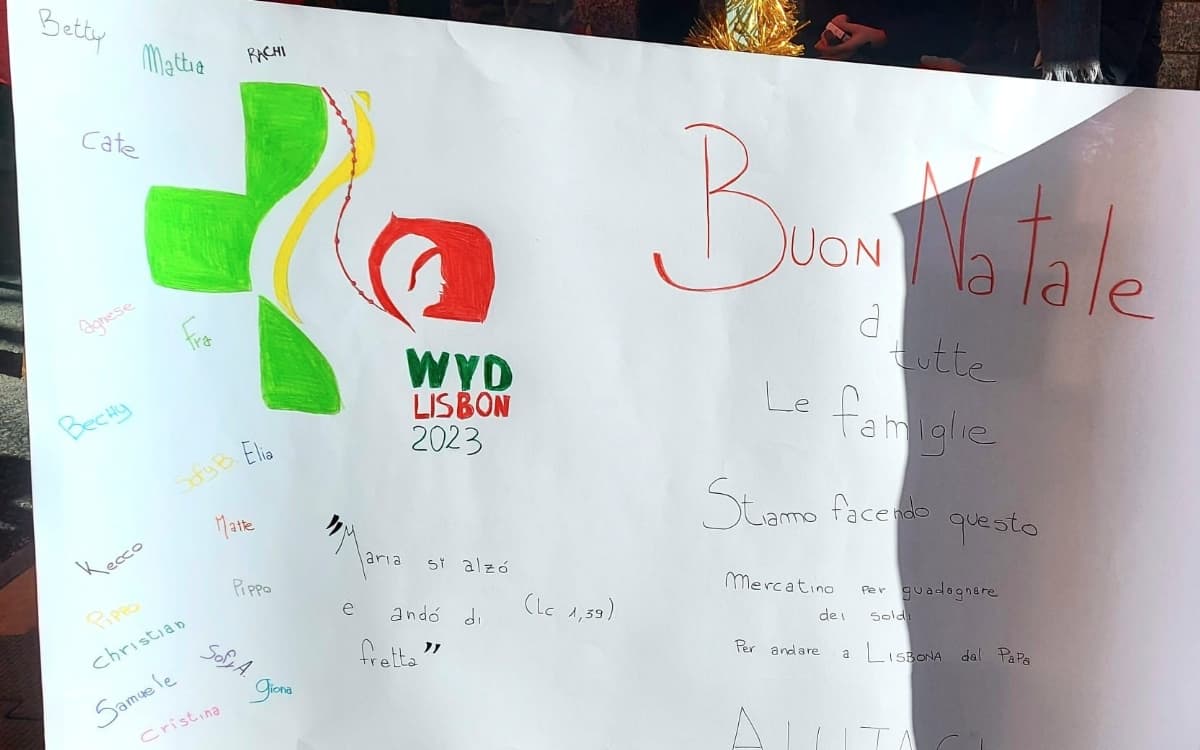 Betty
Mattia
RACHI
Cate
Agnese
Fra
Becky
Sofy B.
Elia
Matte
Kecco
Pippo
Pippo
Christian
Sofy A.
Samuele
Giona
Cristina
WYD
LISBON
2023
"Maria si alzó
e andó di (Lc 1,39)
fretta"
BUON Natale
a
tutte
Le famiglie
Stiamo facendo questo
Mercatino per guadagnare
dei soldi
Per andare a LISBONA dal PaPa